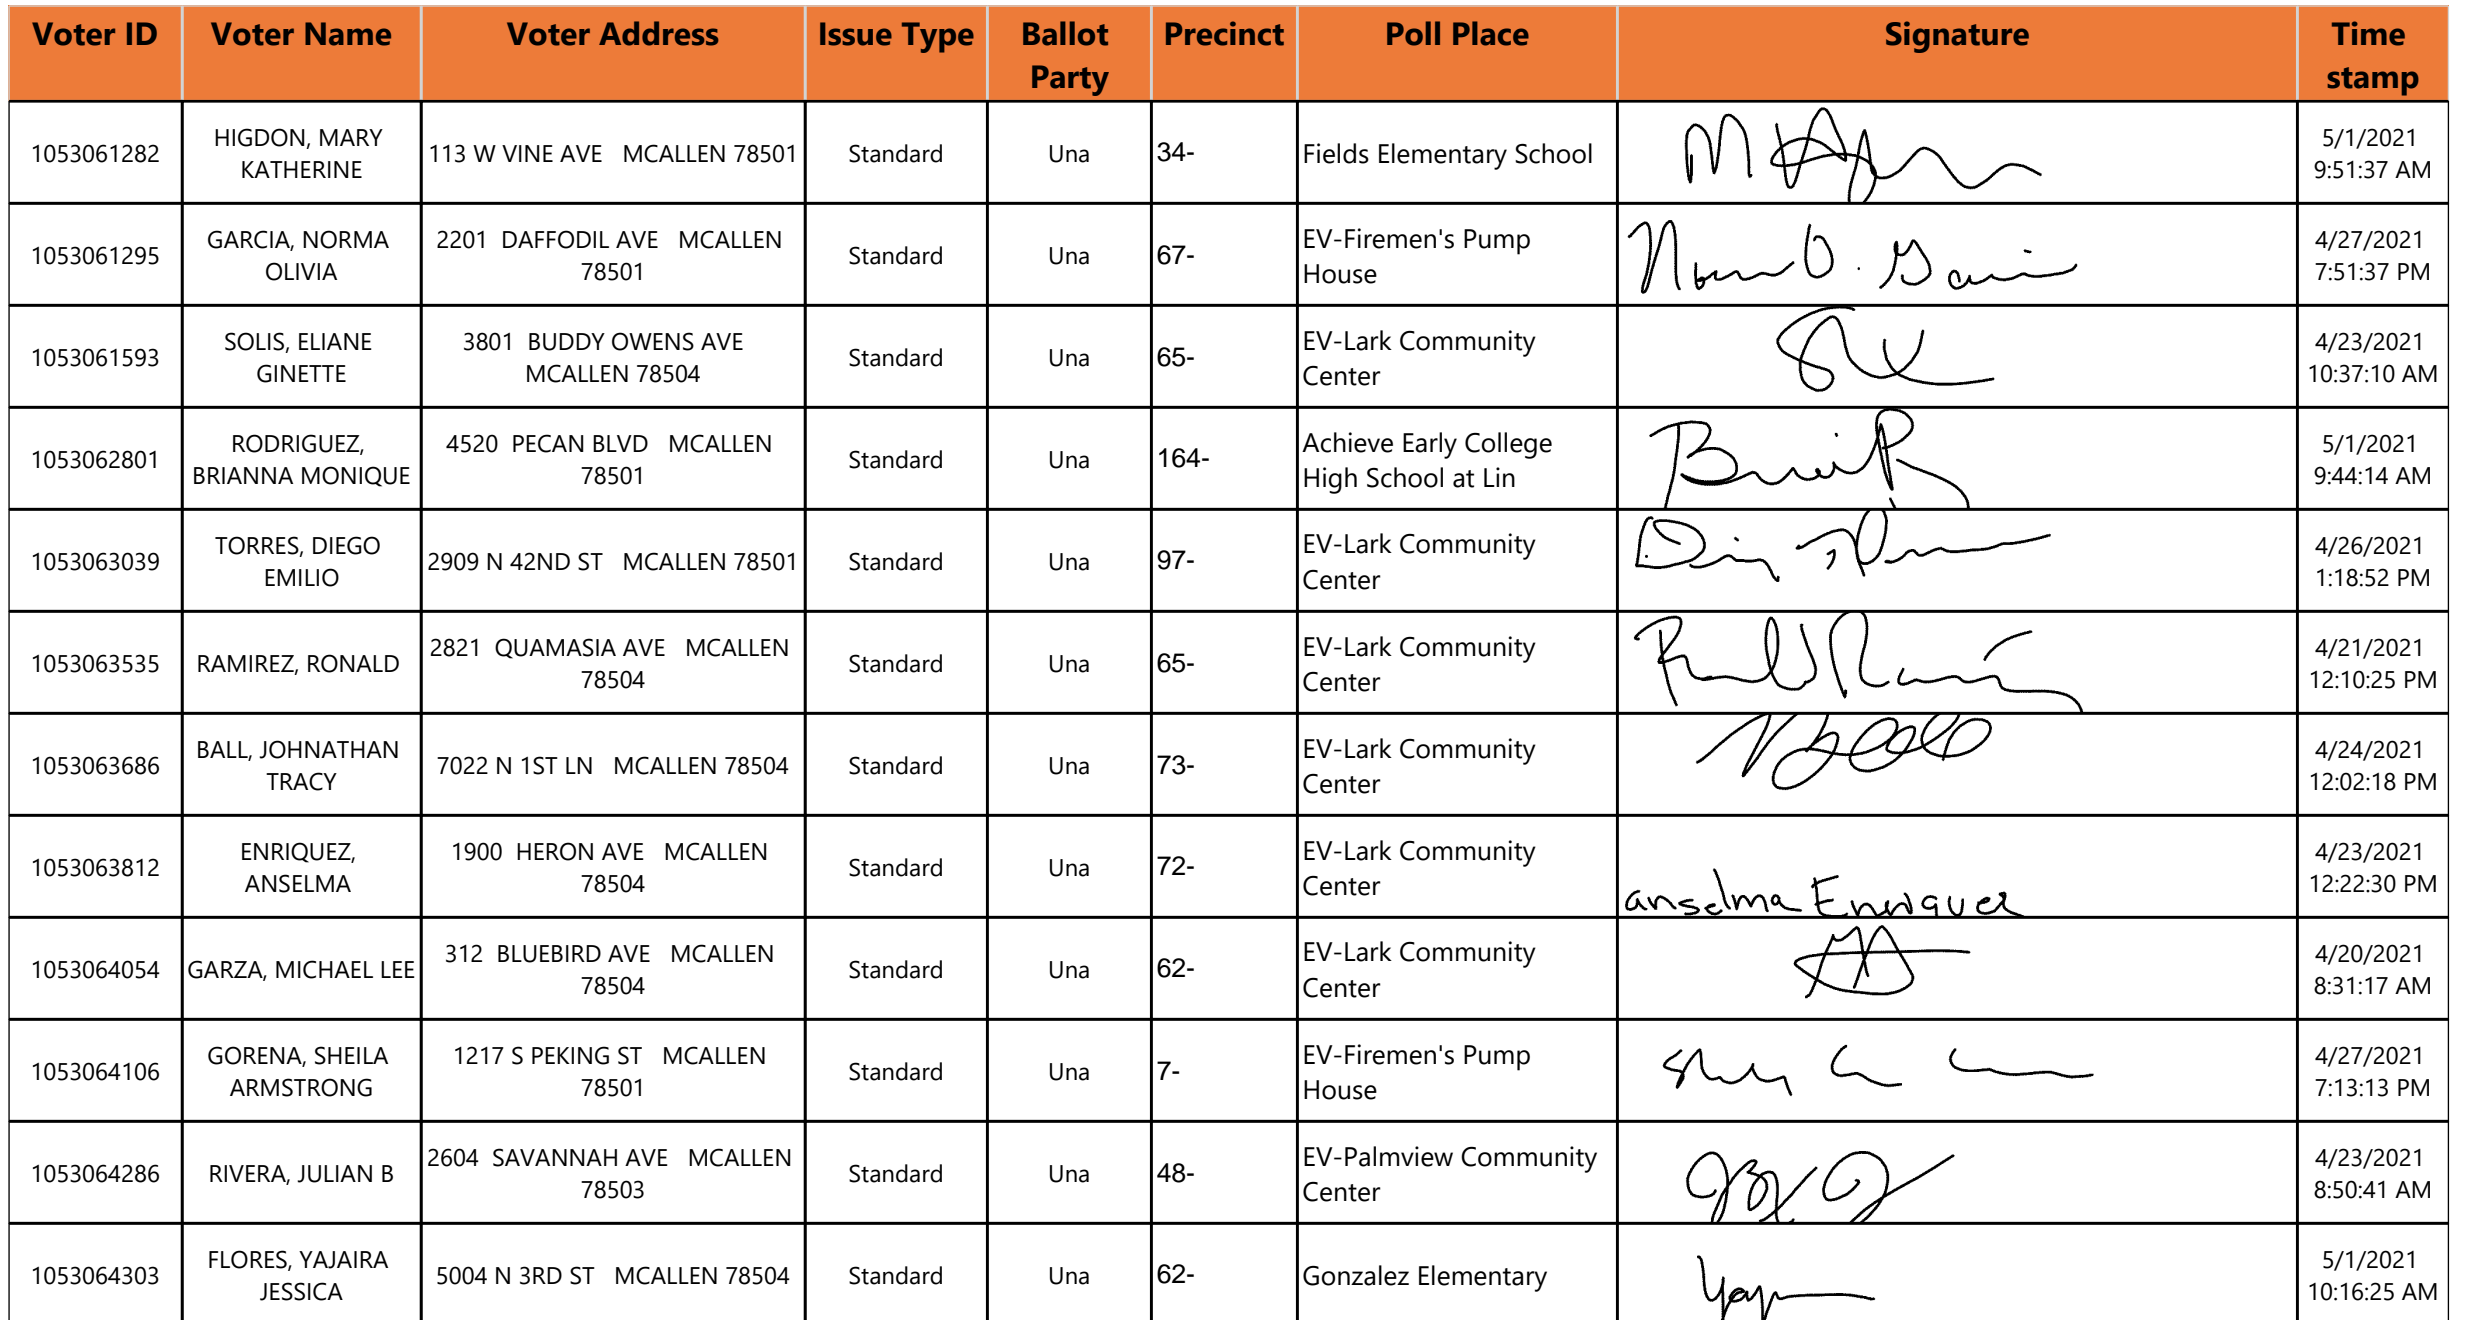 Voter ID Voter Name Voter Address Issue Type Ballot Party Precinct Poll Place Signature Time stamp
1053061282 HIGDON, MARY KATHERINE 113 W VINE AVE MCALLEN 78501 Standard Una 34- Fields Elementary School 5/1/2021 9:51:37 AM
1053061295 GARCIA, NORMA OLIVIA 2201 DAFFODIL AVE MCALLEN 78501 Standard Una 67- EV-Firemen's Pump House 4/27/2021 7:51:37 PM
1053061593 SOLIS, ELIANE GINETTE 3801 BUDDY OWENS AVE MCALLEN 78504 Standard Una 65- EV-Lark Community Center 4/23/2021 10:37:10 AM
1053062801 RODRIGUEZ, BRIANNA MONIQUE 4520 PECAN BLVD MCALLEN 78501 Standard Una 164- Achieve Early College High School at Lin 5/1/2021 9:44:14 AM
1053063039 TORRES, DIEGO EMILIO 2909 N 42ND ST MCALLEN 78501 Standard Una 97- EV-Lark Community Center 4/26/2021 1:18:52 PM
1053063535 RAMIREZ, RONALD 2821 QUAMASIA AVE MCALLEN 78504 Standard Una 65- EV-Lark Community Center 4/21/2021 12:10:25 PM
1053063686 BALL, JOHNATHAN TRACY 7022 N 1ST LN MCALLEN 78504 Standard Una 73- EV-Lark Community Center 4/24/2021 12:02:18 PM
1053063812 ENRIQUEZ, ANSELMA 1900 HERON AVE MCALLEN 78504 Standard Una 72- EV-Lark Community Center anselma Enriquez 4/23/2021 12:22:30 PM
1053064054 GARZA, MICHAEL LEE 312 BLUEBIRD AVE MCALLEN 78504 Standard Una 62- EV-Lark Community Center 4/20/2021 8:31:17 AM
1053064106 GORENA, SHEILA ARMSTRONG 1217 S PEKING ST MCALLEN 78501 Standard Una 7- EV-Firemen's Pump House 4/27/2021 7:13:13 PM
1053064286 RIVERA, JULIAN B 2604 SAVANNAH AVE MCALLEN 78503 Standard Una 48- EV-Palmview Community Center 4/23/2021 8:50:41 AM
1053064303 FLORES, YAJAIRA JESSICA 5004 N 3RD ST MCALLEN 78504 Standard Una 62- Gonzalez Elementary 5/1/2021 10:16:25 AM